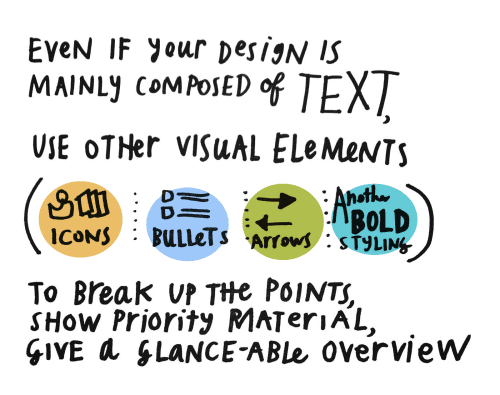 EVEN IF YOUR DESIGN IS
MAINLY COMPOSED OF TEXT,
USE OTHER VISUAL ELEMENTS
(ICONS BULLETS ARROWS Another BOLD STYLING)
TO BREAK UP THE POINTS,
SHOW PRIORITY MATERIAL,
GIVE a GLANCE-ABLE OVERVIEW